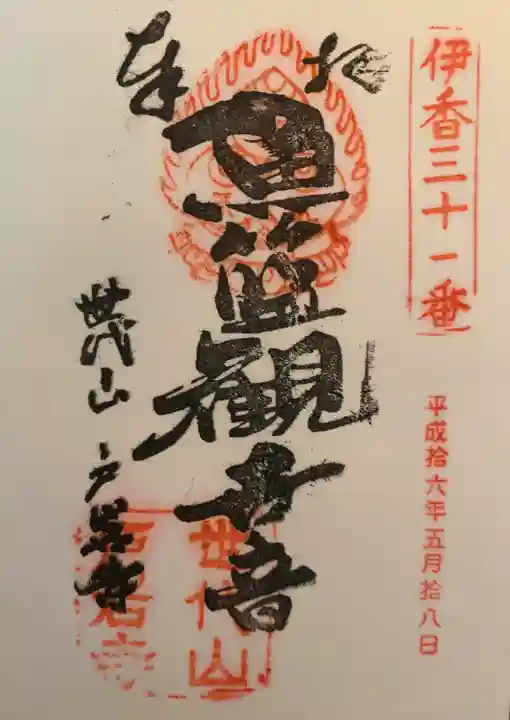 伊香三十一番
平成拾六年五月拾八日
奉 拝
魚籃観世音
世代山 戸岩寺
世代山
戸岩寺